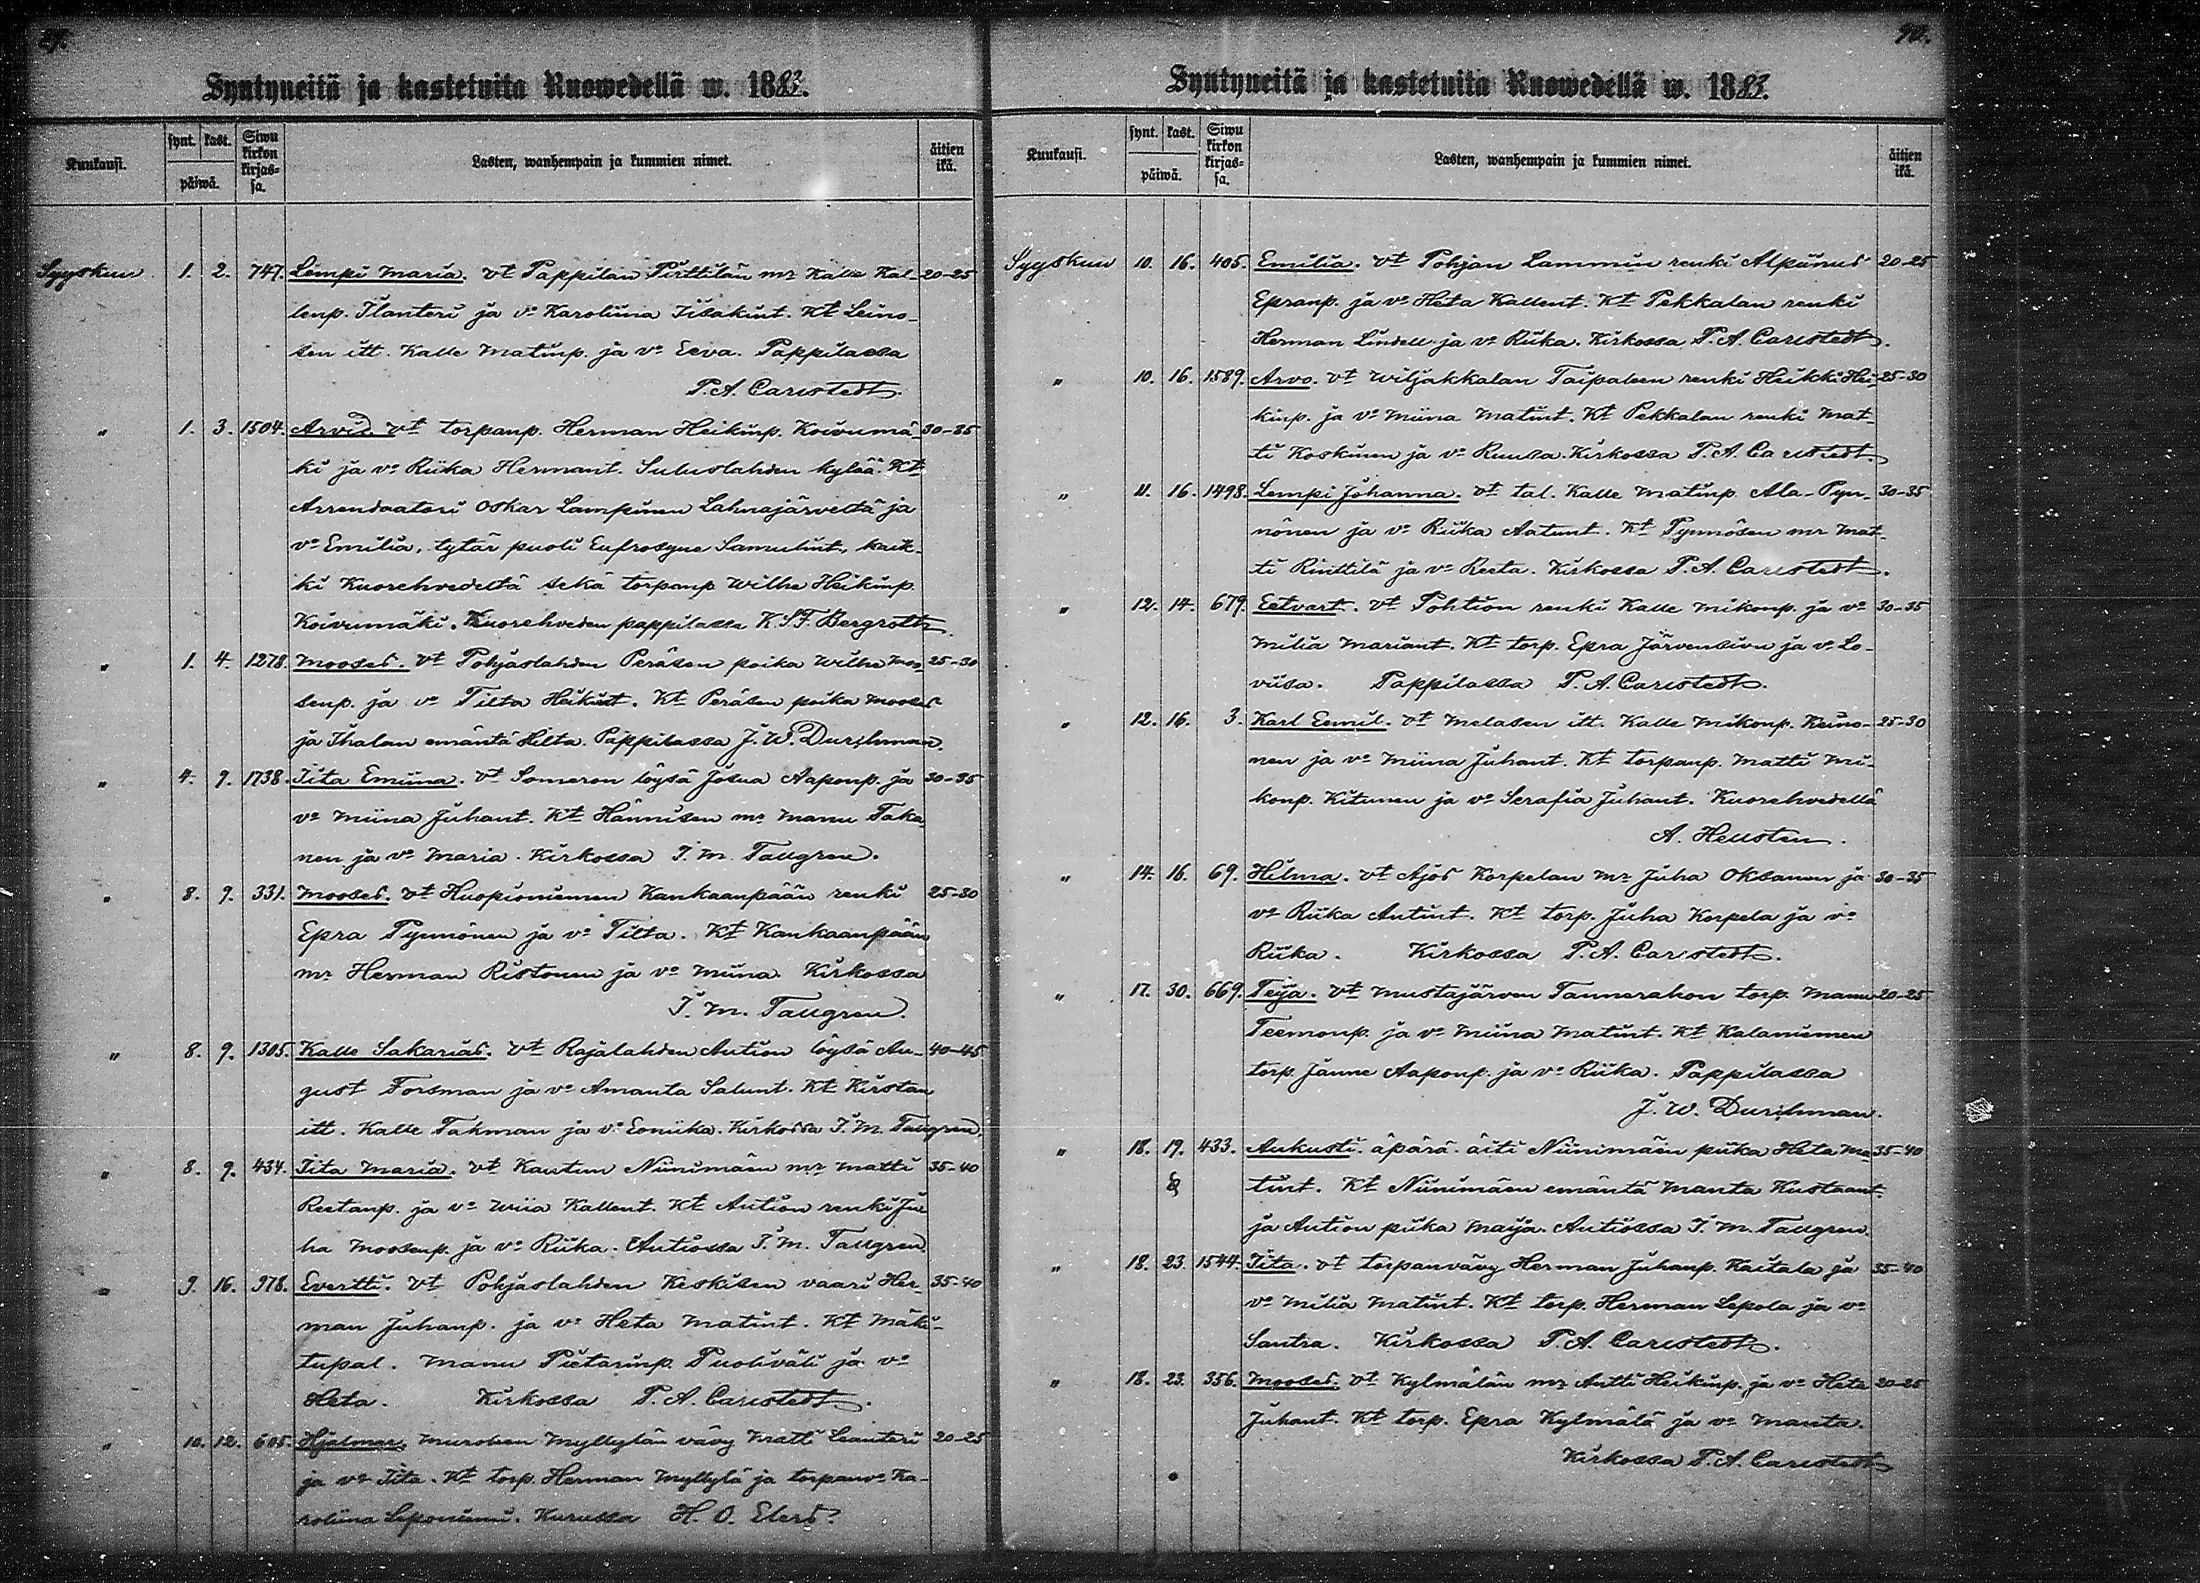 Syntyneitä ja kastetuita Ruowedellä w. 1883.
Kuukausi.
synt. kast.
päiwä.
Siwu kirkon kirjassa.
Lasten, wanhempain ja kummien nimet.
äitien ikä.
Syyskuu 1. 2. 747. Lempi Maria. vt Pappilan Pirttilän mr Kalle Kal- 20-25
lenp. Ilanteri ja vo Karoliina Iisakint. Kt Leino-
sen itt. Kalle Matinp. ja vo Eeva. Pappilassa
T. A. Carlstedt.
" 1. 3. 1504. Arvid. vt torpanp. Herman Heikinp. Koivumä- 30-35
ki ja vo Riika Hermant. Suluslahden kylää. Kt
Arrendaatori Oskar Lampinen Lahnajärveltä ja
vo Emilia, tytär puoli Eufrosyne Samulint., kaik-
ki Kuorehvedeltä sekä torpanp Wilhe Heikinp.
Koivumäki. Kuorehveden pappilassa K. S. F. Bergroth.
" 1. 4. 1278. Mooses. vt Pohjaslahden Peräsen poika Wilhe Moo- 25-30
senp. ja vo Tilta Heikint. Kt Peräsen poika Mooses
ja Ihalan emäntä Hilta. Pappilassa J. W. Durchman.
" 4. 9. 1738. Iita Emiina. vt Someron löysä Josua Aaponp. ja 30-35
vo Miina Juhant. Kt Hännisen mr Manu Taka-
nen ja vo Maria. Kirkossa I. M. Tallgren.
" 8. 9. 331. Mooses. vt Huopioniemen Kankaanpään renki 25-30
Epra Tynnönen ja vo Tilta. Kt Kankaanpään
mr Herman Ristonen ja vo Miina. Kirkossa
I. M. Tallgren.
" 8. 9. 1305. Kalle Sakarias. vt Rajalahden Aution löysä Au- 40-45
gust Forsman ja vo Amanta Salunt. Kt Kirstan
itt. Kalle Takman ja vo Eeniika. Kirkossa I. M. Tallgren.
" 8. 9. 434. Iita Maria. vt Kautun Niinimäen mr Matti 35-40
Reetanp. ja vo Wiia Kallent. Kt Aution renki Ju-
ha Moosenp. ja vo Riika. Autiossa I. M. Tallgren.
" 9. 16. 978. Evertti. vt Pohjaslahden Keskisen vaari Her- 35-40
man Juhanp. ja vo Heta Matint. Kt Mäki-
tupal. Manu Pietarinp. Puoliväli ja vo
Heta. Kirkossa T. A. Carlstedt.
" 10. 12. 605. Hjalmar. Muroleen Myllylän vävy Matti Leanteri 20-25
ja vo Iita. Kt torp. Herman Myllylä ja torpanvo Ka-
roliina Leponiemi. Kurussa H. O. Elers?
90.
Syntyneitä ja kastetuita Ruowedellä w. 1883.
Kuukausi.
synt. kast.
päiwä.
Siwu kirkon kirjassa.
Lasten, wanhempain ja kummien nimet.
äitien ikä.
Syyskuu 10. 16. 405. Emilia. vt Pohjan Lammin renki Alpiinus 20-25
Epranp. ja vo Heta Kallent. Kt Pekkalan renki
Herman Lindell ja vo Riika. Kirkossa T. A. Carlstedt.
" 10. 16. 1589. Arvo. vt Wiljakkalan Taipaleen renki Heikki Hei- 25-30
kinp. ja vo Miina Matint. Kt Pekkalan renki Mat-
ti Koskinen ja vo Ruusa. Kirkossa T. A. Carlstedt.
" 11. 16. 1498. Lempi Johanna. vt tal. Kalle Matinp. Ala-Pyn- 30-35
nönen ja vo Riika Aatunt. Kt Pynnösen mr Mat-
ti Rinttilä ja vo Reeta. Kirkossa T. A. Carlstedt.
" 12. 14. 679. Eetvart. vt Pohtion renki Kalle Mikonp. ja vo 30-35
Milia Mariant. Kt torp. Epra Järvensivu ja vo Lo-
viisa. Pappilassa T. A. Carlstedt.
" 12. 16. 3. Karl Eemil. vt Melasen itt. Kalle Mikonp. Keino- 25-30
nen ja vo Miina Juhant. Kt torpanp. Matti Mi-
konp. Kitunen ja vo Serafia Juhant. Kuorehvedellä
A. Hellsten.
" 14. 16. 69. Hilma. vt Ajos Korpelan mr Juha Oksanen ja 30-35
vo Riika Antint. Kt torp. Juha Korpela ja vo
Riika. Kirkossa T. A. Carlstedt.
" 17. 30. 669. Teija. vt Mustajärven Tannerahon torp. Manu 20-25
Teemonp. ja vo Miina Matint. Kt Kalaniemen
torp. Janne Aaponp. ja vo Riika. Pappilassa
J. W. Durchman.
" 18. 19. 433. Aukusti. äpärä. äiti Niinimäen piika Heta Ma- 35-40
tint. Kt Niinimäen emäntä Manta Kustaant.
ja Aution piika Maija. Autiossa I. M. Tallgren.
" 18. 23. 1544. Iita. vt torpanvävy Herman Juhanp. Kaitala ja 35-40
vo Milia Matint. Kt torp. Herman Lepola ja vo
Santra. Kirkossa T. A. Carlstedt.
" 18. 23. 356. Mooses. vt Kylmälän mr Antti Heikinp. ja vo Heta 20-25
Juhant. Kt torp. Epra Kylmälä ja vo Manta.
Kirkossa T. A. Carlstedt